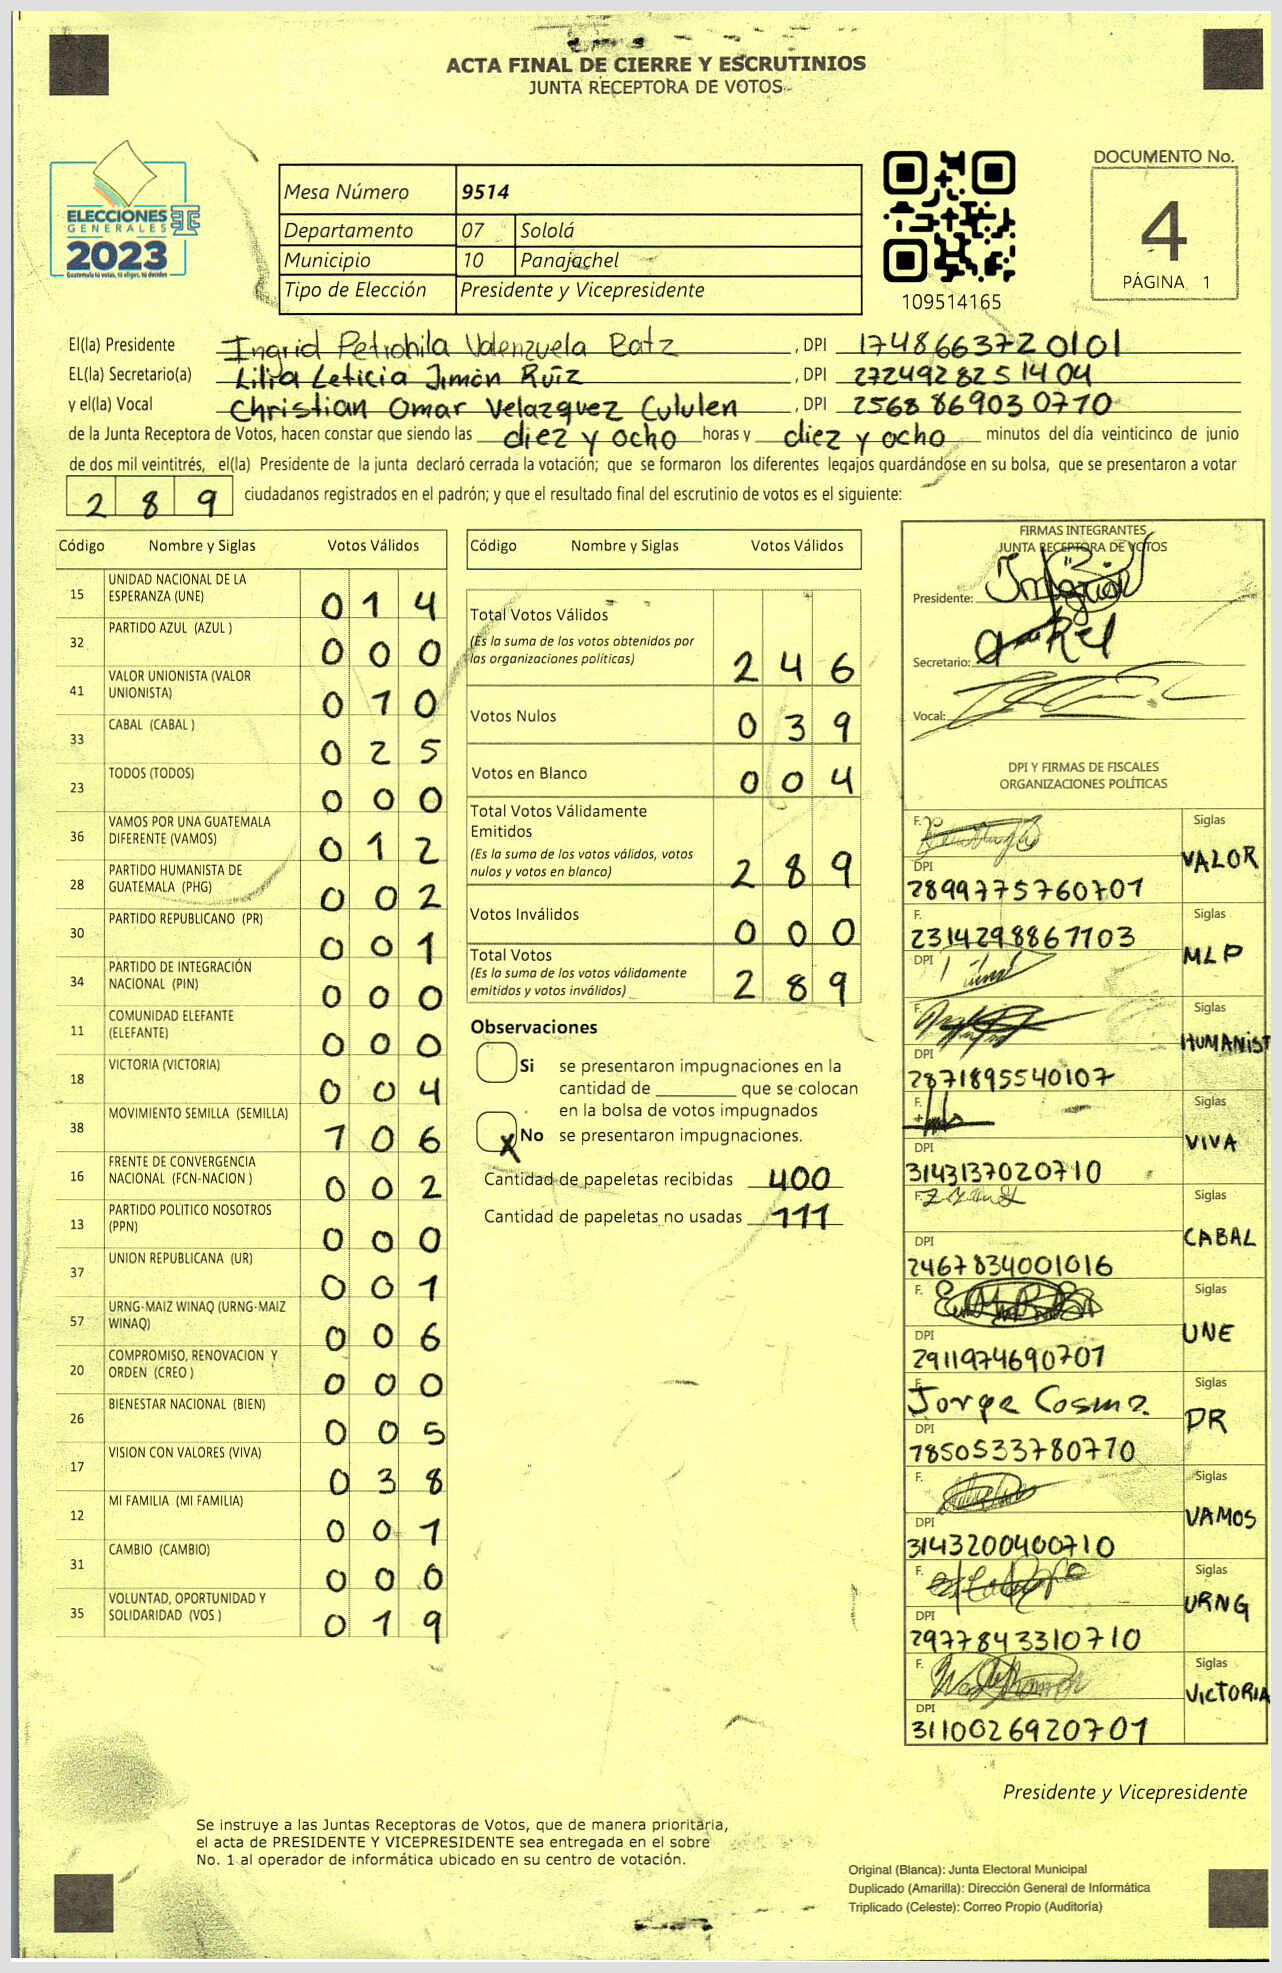 ACTA FINAL DE CIERRE Y ESCRUTINIOS
JUNTA RECEPTORA DE VOTOS
ELECCIONES
GENERALES
2023
Guatemala tú votas, tú eliges, tú decides
Mesa Número 9514
Departamento 07 Sololá
Municipio 10 Panajachel
Tipo de Elección Presidente y Vicepresidente
109514165
DOCUMENTO No.
4
PÁGINA 1
El(la) Presidente Ingrid Petrohila Valenzuela Batz , DPI 1748663720101
EL(la) Secretario(a) Lilia Leticia Jimón Ruíz , DPI 2724928251404
y el(la) Vocal Christian Omar Velazquez Cululen , DPI 2568869030710
de la Junta Receptora de Votos, hacen constar que siendo las diez y ocho horas y diez y ocho minutos del día veinticinco de junio
de dos mil veintitrés, el(la) Presidente de la junta declaró cerrada la votación; que se formaron los diferentes legajos guardándose en su bolsa, que se presentaron a votar
289 ciudadanos registrados en el padrón; y que el resultado final del escrutinio de votos es el siguiente:
Código Nombre y Siglas Votos Válidos
15 UNIDAD NACIONAL DE LA ESPERANZA (UNE) 014
32 PARTIDO AZUL (AZUL ) 000
41 VALOR UNIONISTA (VALOR UNIONISTA) 010
33 CABAL (CABAL ) 025
23 TODOS (TODOS) 000
36 VAMOS POR UNA GUATEMALA DIFERENTE (VAMOS) 012
28 PARTIDO HUMANISTA DE GUATEMALA (PHG) 002
30 PARTIDO REPUBLICANO (PR) 001
34 PARTIDO DE INTEGRACIÓN NACIONAL (PIN) 000
11 COMUNIDAD ELEFANTE (ELEFANTE) 000
18 VICTORIA (VICTORIA) 004
38 MOVIMIENTO SEMILLA (SEMILLA) 106
16 FRENTE DE CONVERGENCIA NACIONAL (FCN-NACION ) 002
13 PARTIDO POLITICO NOSOTROS (PPN) 000
37 UNION REPUBLICANA (UR) 001
57 URNG-MAIZ WINAQ (URNG-MAIZ WINAQ) 006
20 COMPROMISO, RENOVACION Y ORDEN (CREO ) 000
26 BIENESTAR NACIONAL (BIEN) 005
17 VISION CON VALORES (VIVA) 038
12 MI FAMILIA (MI FAMILIA) 001
31 CAMBIO (CAMBIO) 000
35 VOLUNTAD, OPORTUNIDAD Y SOLIDARIDAD (VOS ) 019
Código Nombre y Siglas Votos Válidos
Total Votos Válidos
(Es la suma de los votos obtenidos por
las organizaciones políticas) 246
Votos Nulos 039
Votos en Blanco 004
Total Votos Válidamente
Emitidos
(Es la suma de los votos válidos, votos
nulos y votos en blanco) 289
Votos Inválidos 000
Total Votos
(Es la suma de los votos válidamente
emitidos y votos inválidos) 289
Observaciones
Si se presentaron impugnaciones en la
cantidad de que se colocan
en la bolsa de votos impugnados
X No se presentaron impugnaciones.
Cantidad de papeletas recibidas 400
Cantidad de papeletas no usadas 111
FIRMAS INTEGRANTES
JUNTA RECEPTORA DE VOTOS
Presidente:
Secretario:
Vocal:
DPI Y FIRMAS DE FISCALES
ORGANIZACIONES POLÍTICAS
F. Siglas
DPI VALOR
2899775760701
F. Siglas
2314298867703 MLP
DPI
F. Siglas
DPI HUMANIST
2871895540107
F. Siglas
DPI VIVA
3143137020710
F. Siglas
DPI CABAL
2467834001016
F. Siglas
DPI UNE
2911974690701
F. Siglas
Jorge PR
DPI
7850533780770
F. Siglas
DPI VAMOS
3143200400710
F. Siglas
DPI URNG
2977843310710
F. Siglas
DPI VICTORIA
3110026920701
Presidente y Vicepresidente
Se instruye a las Juntas Receptoras de Votos, que de manera prioritaria,
el acta de PRESIDENTE Y VICEPRESIDENTE sea entregada en el sobre
No. 1 al operador de informática ubicado en su centro de votación.
Original (Blanca): Junta Electoral Municipal
Duplicado (Amarilla): Dirección General de Informática
Triplicado (Celeste): Correo Propio (Auditoría)